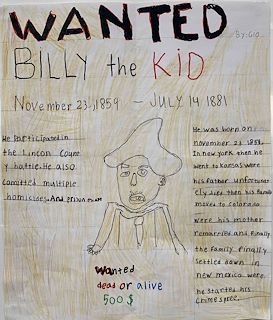 WANTED
By: Gio
BILLY the KID
November 23, 1859 — JULY 14 1881
He Participated in
the Lincon Coune
y battle. He also
comitted multiple
homicises. And prison
He was born on
november 23 1859.
In new york then he
went to Kansas were
his father unfortunat
ely died then his family
makes to colorado
were his mother
remarried and finally
the family finally
settled down in
new mexico were
he started his
crime spree.
Wanted
dead or alive
500 $